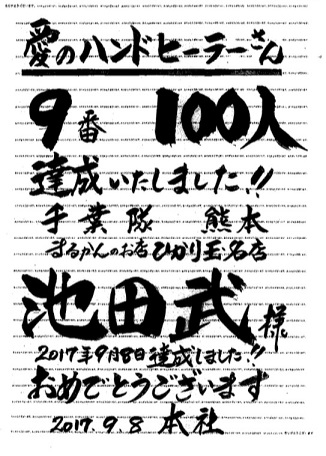 愛のハンドヒーラーさん
9番 100人
達成いたしました!!
千葉隊 熊本
まるかんのお店ひかり玉名店
池田武様
2017年9月8日達成しました!!
おめでとうございます
2017.9.8 本社